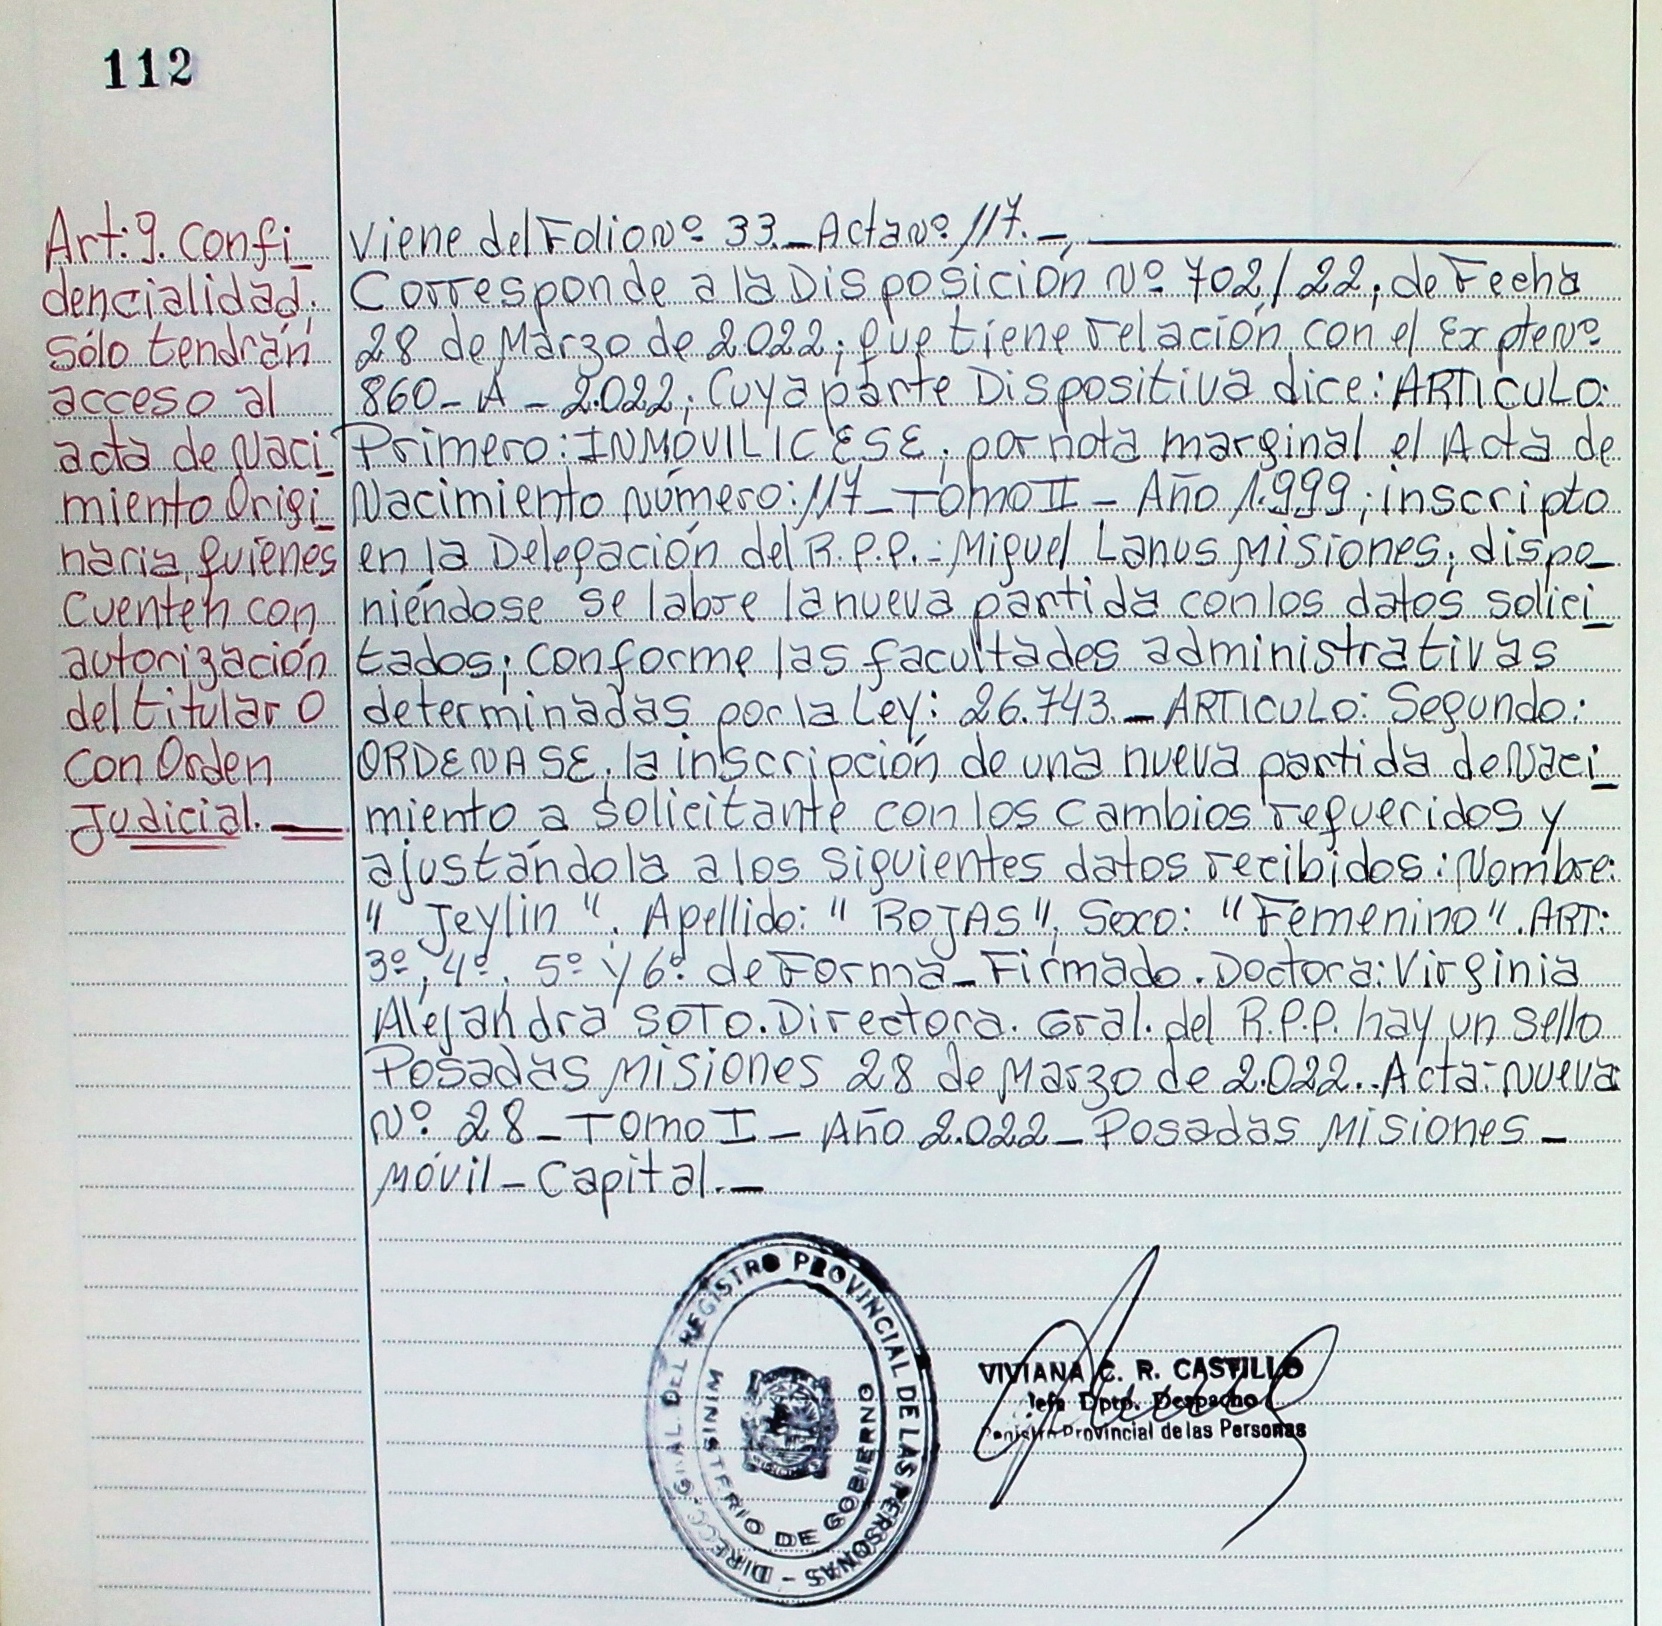 112
Art: 9. Confi_
dencialidad;
sólo tendrán
acceso al
acta de Naci_
miento Origi_
naria, quienes
cuenten con
autorización
del titular o
con Orden
Judicial._
Viene del Folio Nº 33_ Acta Nº 117._
Corresponde a la Disposición Nº 702/22; de Fecha
28 de Marzo de 2.022; que tiene relación con el Expte Nº
860_ A _ 2.022; Cuya parte Dispositiva dice: ARTICULO:
Primero: INMÓVILICESE; por nota marginal el Acta de
Nacimiento Número: 117_ TOMO II _ Año 1.999; inscripto
en la Delegación del R.P.P.-: Miguel Lanus Misiones; dispo_
niéndose se labre la nueva partida con los datos solici_
tados; conforme las facultades administrativas
determinadas por la Ley: 26.743._ ARTICULO: Segundo:
ORDENASE, la inscripción de una nueva partida de Naci_
miento a solicitante con los cambios requeridos y
ajustándola a los siguientes datos recibidos: Nombre:
" Jeylin ". Apellido: " ROJAS ", Sexo: " Femenino ". ART:
3º, 4º, 5º y 6º. de Forma_ Firmado. Doctora: Virginia
Alejandra SOTO. Directora. Gral. del R.P.P. hay un sello
Posadas Misiones 28 de Marzo de 2.022.. Acta: Nueva
Nº: 28_ TOMO I_ Año 2.022_ Posadas Misiones_
Móvil_ Capital._
DIRECC. GRAL. DEL REGISTRO PROVINCIAL DE LAS PERSONAS -
MINISTERIO DE GOBIERNO
VIVIANA C. R. CASTILLO
Jefa Dpto. Despacho
Registro Provincial de las Personas